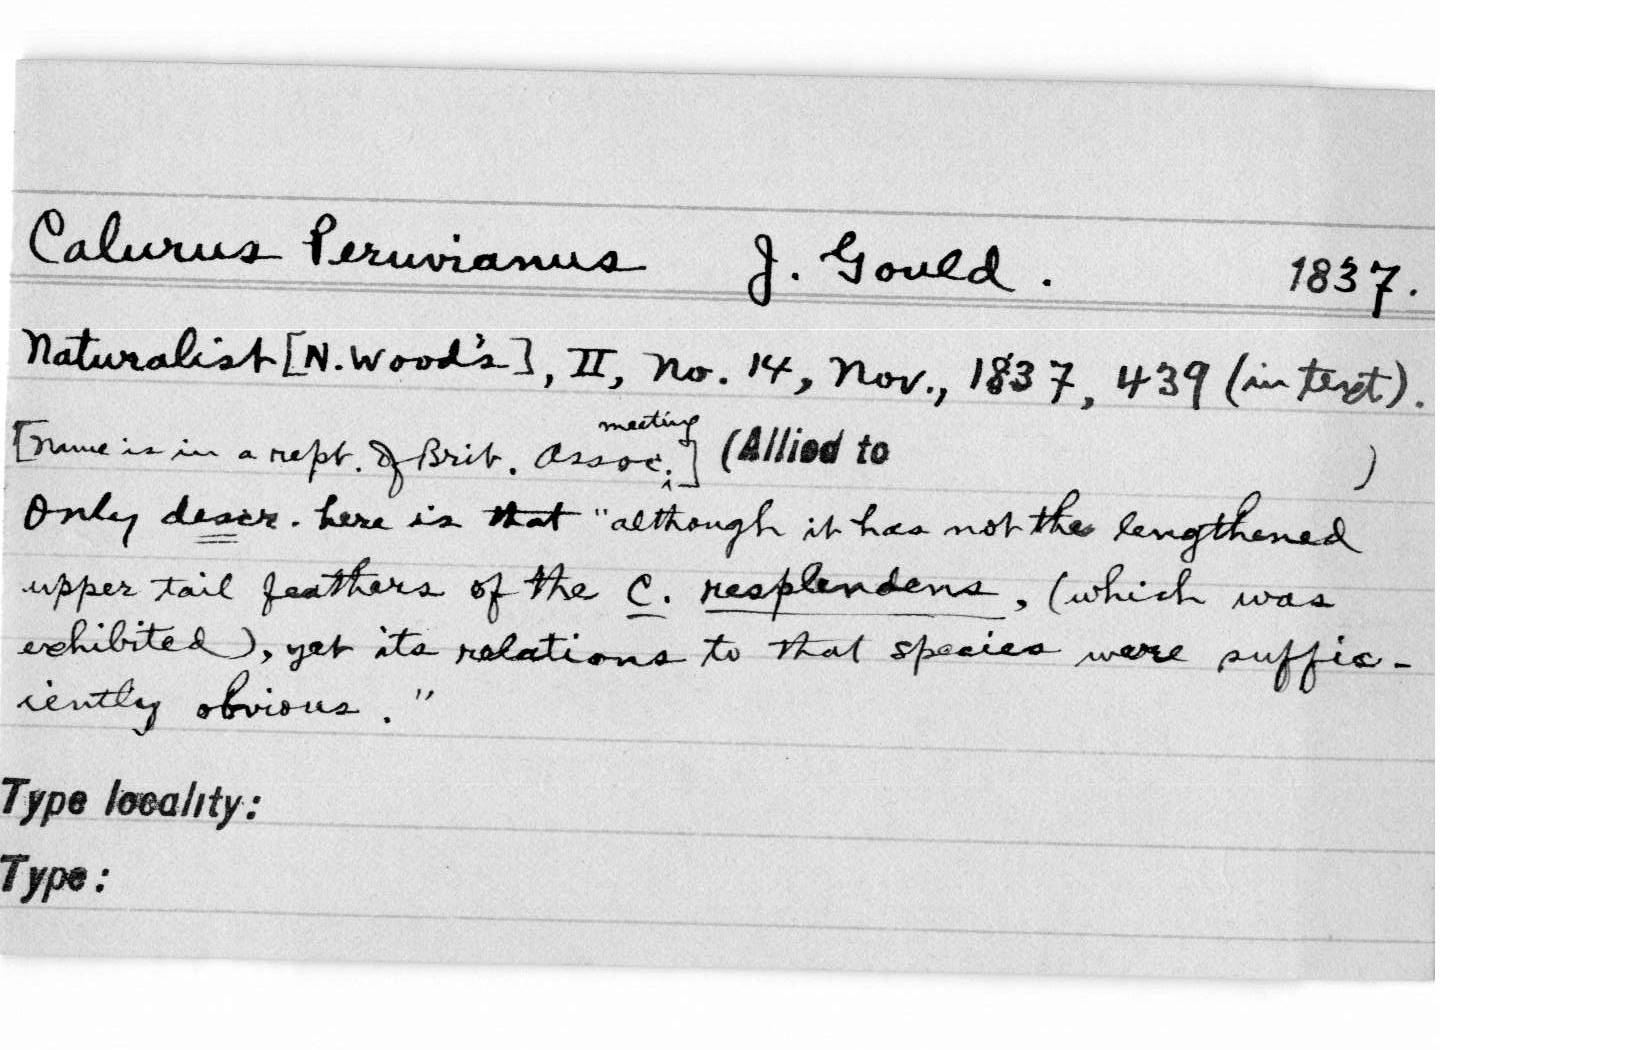 Calurus Peruvianus J. Gould. 1837.
Naturalist [N. Wood's], II, No. 14, Nov., 1837, 439 (in text).
[Name is in a rept. of Brit. Assoc. meeting] (Allied to )
Only descr. here is that "although it has not the lengthened
upper tail feathers of the C. resplendens, (which was
exhibited), yet its relations to that species were suffic-
iently obvious."
Type locality:
Type: